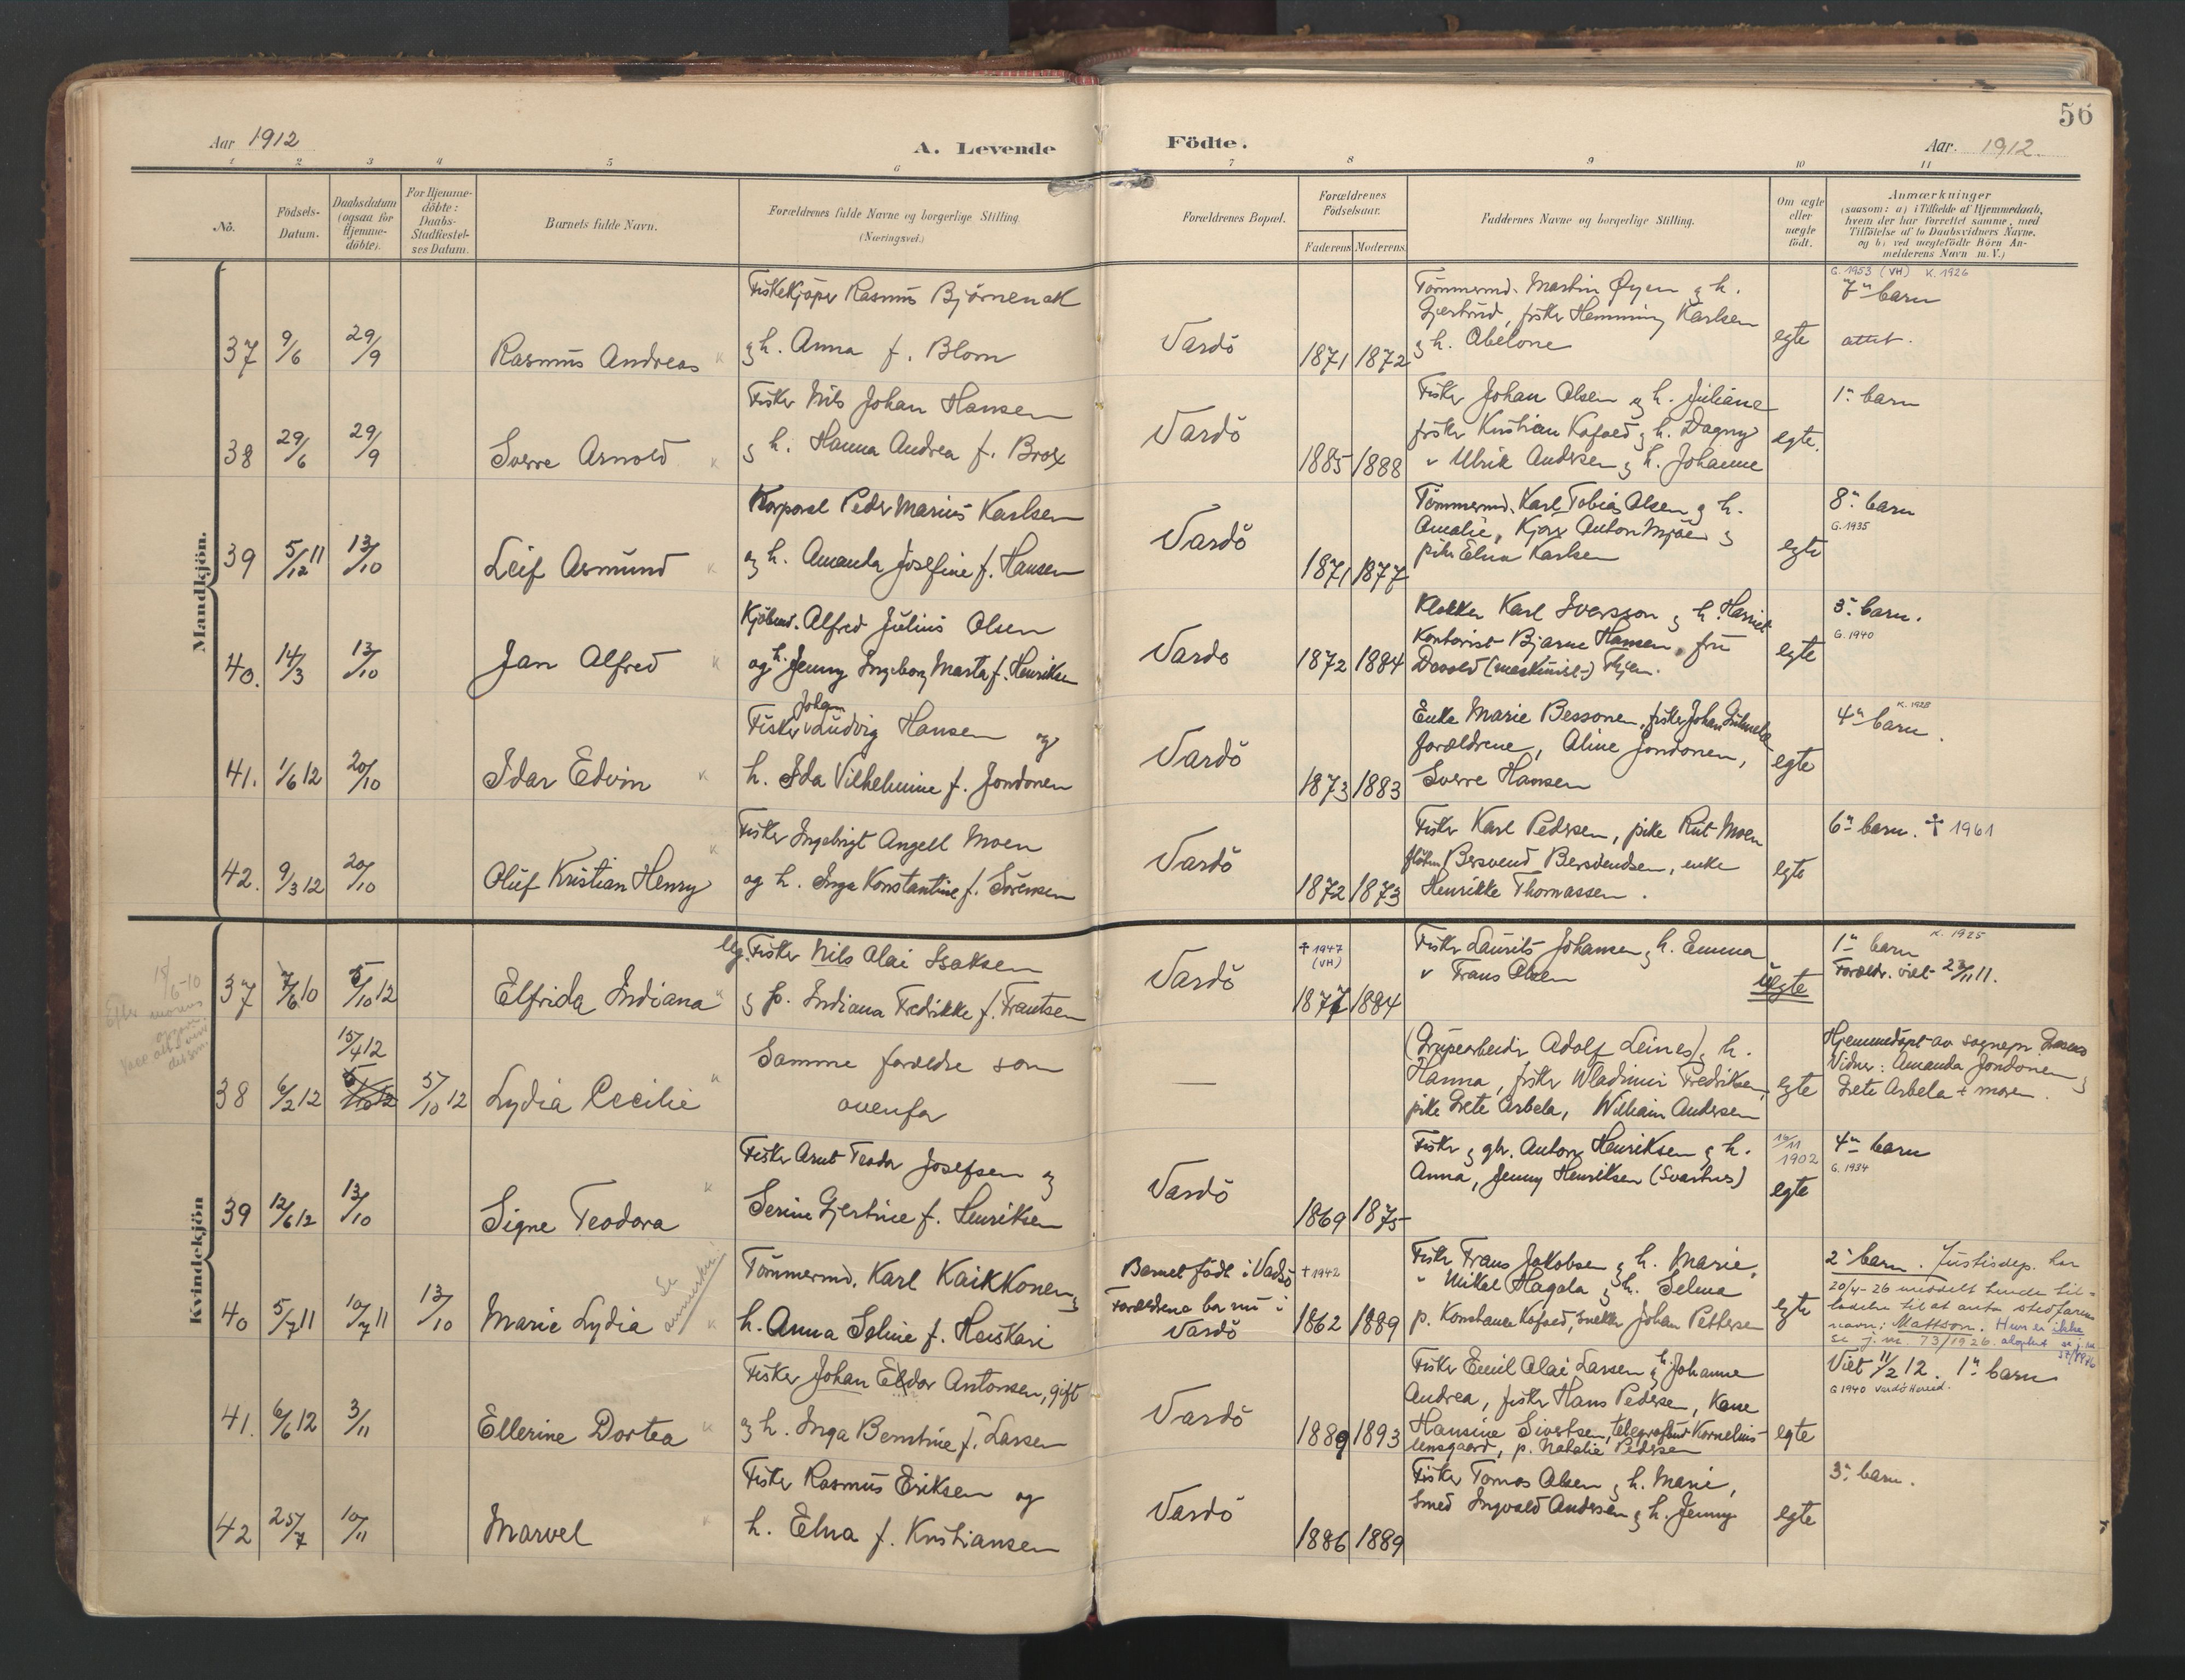 56
Aar 1912
A. Levende Födte.
Aar. 1912.
1 2 3 4 5 6 7 8 9 10 11
No.
Födsels-
Datum.
Daabsdatum
(ogsaa for
Hjemme-
döbte).
For Hjemme-
döbte:
Daabs-
Stadfæstel-
ses Datum.
Barnets fulde Navn.
Forældrenes fulde Navne og borgerlige Stilling
(Næringsvei.)
Forældrenes Bopæl.
Forældrenes
Födselsaar.
Faderens Moderens
Faddernes Navne og borgerlige Stilling.
Om ægte
eller
uægte
födt.
Anmærkninger
(saasom: a) i Tilfælde af Hjemmedaab,
hvem der har forrettet samme, med
Tilföielse af to Daabsvidners Navne,
og b) ved uægtefödte Börn An-
melderens Navn m. V.)
Mandkjön.
37 9/6 29/9
Rasmus Andreas
Fiskekjöper Rasmus Björnenak
g h. Anna f. Blom
Vardö
1871 1872
Tömmermd. Martin Øyen g h.
Gjertrud, fisker Hemming Karlsen
g h. Abelone
egte
G. 1953 (VH) K. 1926
7de barn
attest.
38 29/6 29/9
Sverre Arnold
Fisker Nils Johan Hansen
g h. Hanna Andrea f. Brox
Vardö
1885 1888
Fisker Johan Olsen g h. Juliane
fisker Kristian Kofoed g h. Dagny
" Ulrik Andersen g h. Johanne
egte.
1ste barn
39 5/12 11 13/10
Leif Asmund
Korporal Peder Marius Karlsen
g h. Amanda Josefine f. Hansen
Vardö
1871 1877
Tömmermd. Karl Tobias Olsen g h.
Amalie, Anton Mjöen g
pike Elna Karlsen
egte
8de barn
G. 1935
40. 14/3 13/10
Jan Alfred
Kjöbmd. Alfred Julius Olsen
og h. Jenny Ingeborg Marta f. Henriksen
Vardö
1872 1884
Klokker Karl Iversson g h. Harriet
Kontorist Bjarne Hansen, fru
(maskinist)
egte
3. barn.
G. 1940
41. 1/6 12 20/10
Idar Edvin
Johan
Fisker Ludvig Hansen og
h. Ida Vilhelmine f. Jondonen
Vardö
1873 1883
Enke Marie Bessonen, fisker Johan
forældrene, Aline Jondonen,
Sverre Hansen
egte
K. 1928
4de barn.
42. 9/3 12 20/10
Oluf Kristian Henry
Fisker Ingebrigt Angell Moen
og h. Inga Konstantine f. Sörensen
Vardö
1872 1873
Fisker Karl Pedersen, pike Rut Moen
Bersvend Bersvendsen, enke
Henrikke Thomassen.
egte
6te barn. † 1961
Kvindekjön
37 7/6 10 5/10 12
15/6-10
Efter morens
Elfrida Indiana
Ug. Fisker Nils Olai Isaksen
g p. Indiana Fredrikke f. Frantsen
Vardö
† 1947
(VH)
1877 1884
Fisker Laurits Johansen g h. Emma
" Frans Olsen
uegte
K. 1925
1ste barn
Foreldr. viet 23/11 11.
38 6/2 12 15/4 12 5/10 12
Lydia Cecilie
Samme forældre som
ovenfor
—
(Grubearbeider Adolf Leines) g h.
Hanna, fisker Wladimir Fredriksen,
pike Grete Arbela, William Andersen
egte
Hjemmedöpt av sognepr.
Vidner: Amanda Jondonen g
Grete Arbela + moren.
39 12/6 12 13/10
Signe Teodora
Fisker Arnt Teodor Josefsen g
Serine Gjertine f. Henriksen
Vardö
1869 1875
Fisker g gbr. Anton Henriksen g h.
Anna, Jenny Henriksen (Svartnes)
16/11
1902
egte
4de barn
G. 1934
40 5/7 11 10/7 11 13/10
Marie Lydia
Se
anmerkn.
Tömmermd. Karl Kaikkonen g
h. Anna Seline f. Heiskari
Barnet födt i Vadsö
Forældrene bor nu i
Vardö
† 1942
1862 1889
Fisker Frans Jakobsen g h. Marie,
" Mikal Hagala g h. Selma
p. Konstanse Kofoed, snekker Johan Pettersen
egte
2. barn. Justisdep. har
20/4-26 meddelt hende til-
ladelse til at anta stedfarens
navn: Mattson. Hun er ikke
se j. nr. 73/1926. adoptert se j. nr.
41. 6/6 12 3/11
Ellerine Dortea
Fisker Johan Eldor Antonsen, gift
g h. Inga Benstine f. Larsen
Vardö
1889 1893
Fisker Emil Olai Larsen g h. Johanne
Andrea, fisker Hans Pedersen, Kone
Hansine Sivertsen, telegrafbud Kornelius
Lensgaard, p. Natalie Pedersen
egte
Viet 11/2 12. 1ste barn
G 1940 Vardö Herred.
42 25/7 10/11
Marvel
Fisker Rasmus Eriksen og
h. Elna f. Kristiansen
Vardö
1886 1889
Fisker Tomas Olsen g h. Marie,
Smed Ingvald Andersen g h. Jenny
egte
3. barn.